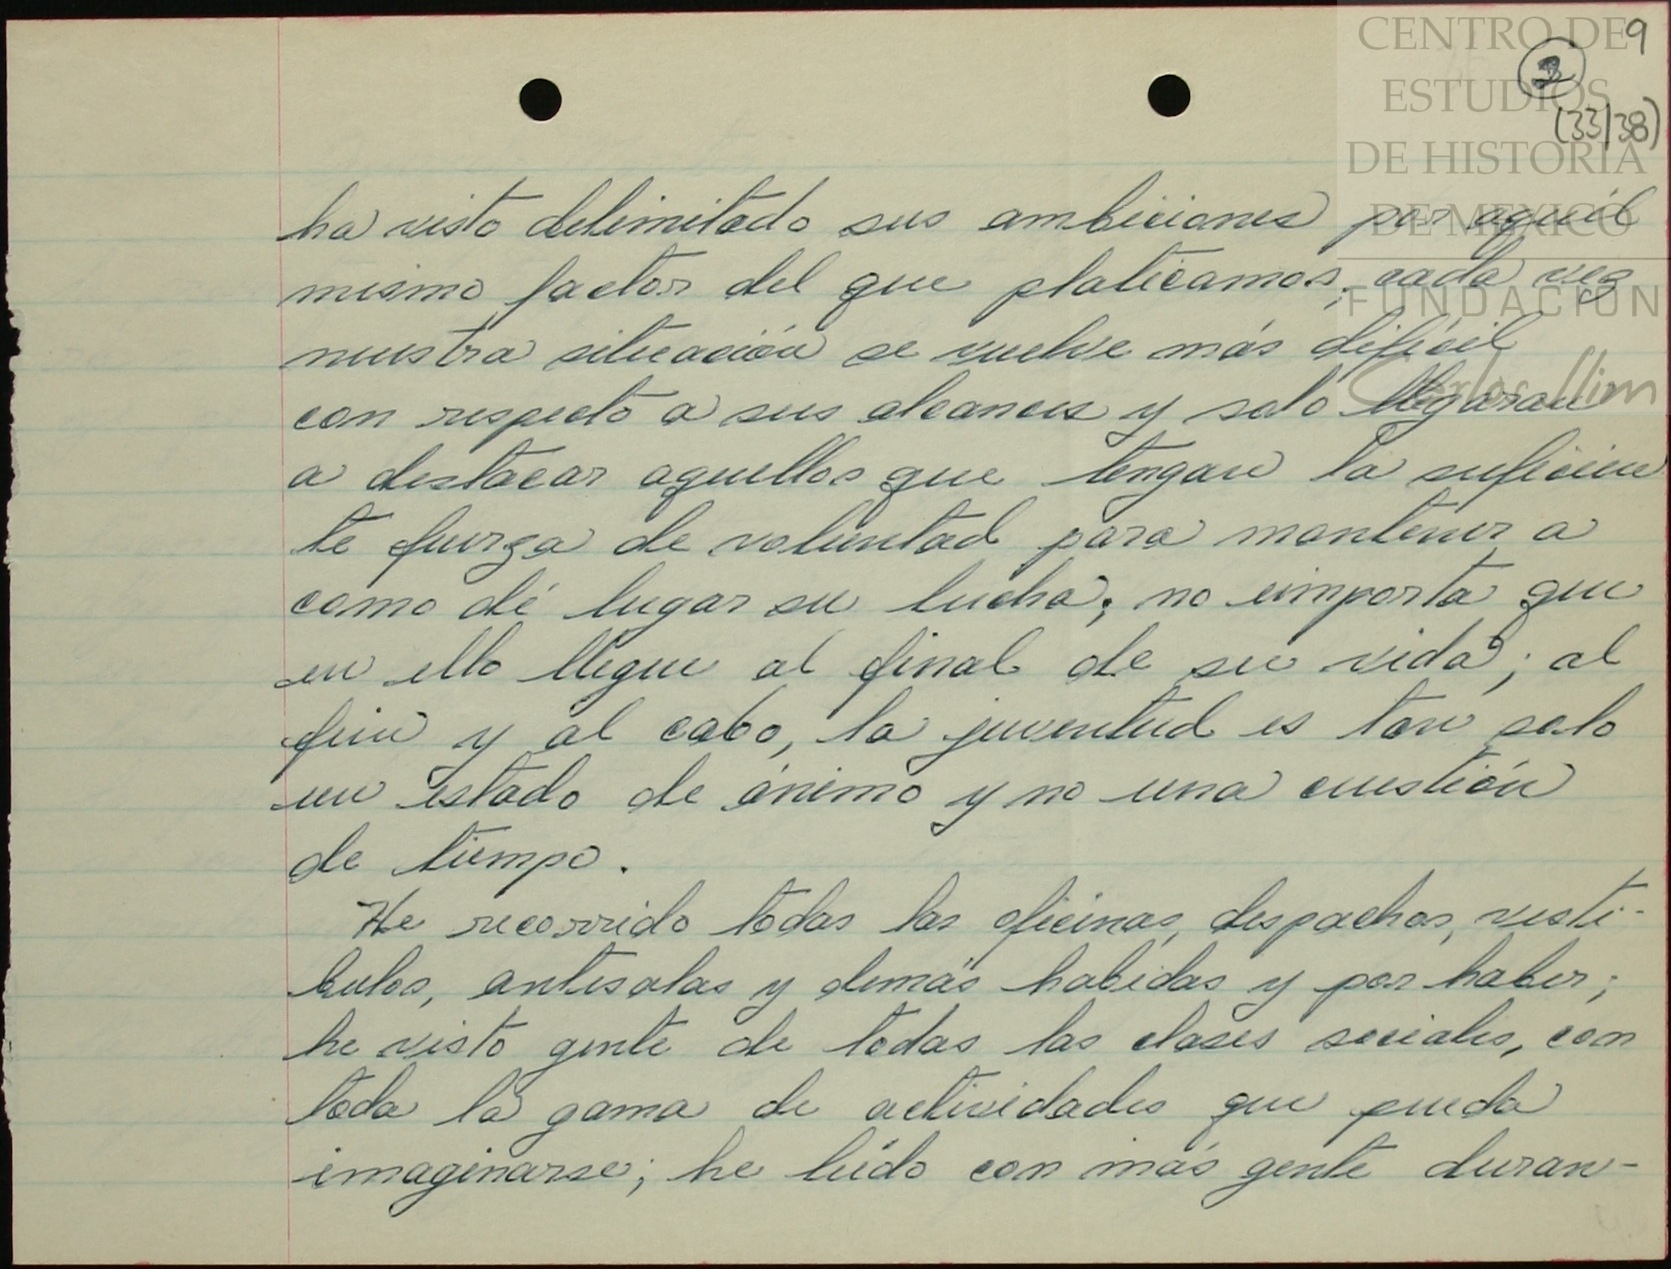 CENTRO DE
ESTUDIOS
DE HISTORIA
DE MEXICO
FUNDACIÓN
Carlos Slim
9
(33/38)
ha visto delimitado sus ambiciones por aquél
mismo factor del que platicamos, cada vez
nuestra situación se vuelve más difícil
con respecto a sus alcances y solo llegaran
a destacar aquellos que tengan la suficien
te fuerza de voluntad para mantener a
como dé lugar su lucha; no importa que
en ello llegue al final de su vida; al
fin y al cabo, la juventud es tan solo
un estado de ánimo y no una cuestión
de tiempo.
He recorrido todas las oficinas, despachos, vesti-
bulos, antesalas y demás habidas y por haber;
he visto gente de todas las clases sociales, con
toda la gama de actividades que pueda
imaginarse; he lúdo con más gente duran-